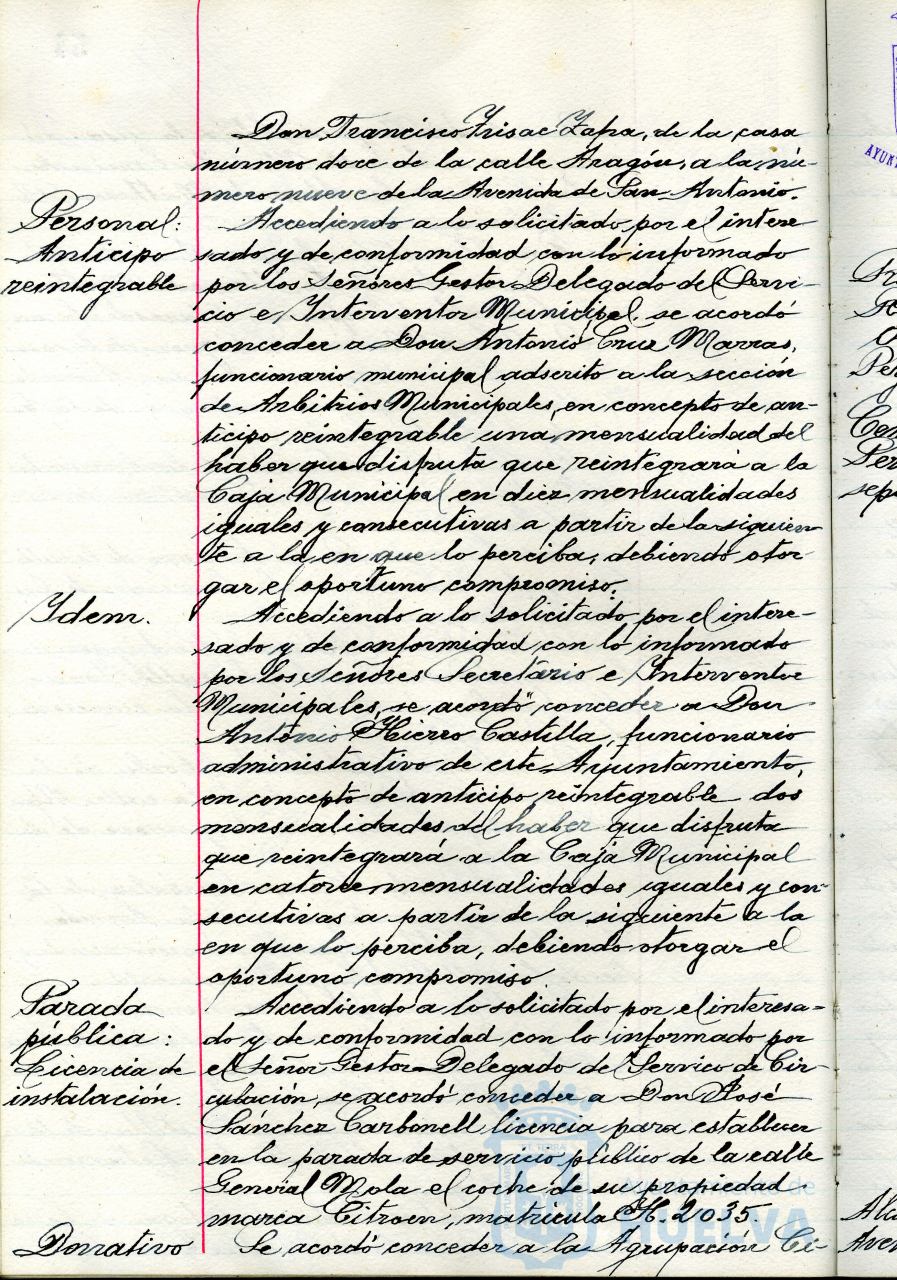 Don Francisco Yrisac Zapa, de la casa
número doce de la calle Aragón, a la nú-
mero nueve de la Avenida de San Antonio.
Personal:
Anticipo
reintegrable
Accediendo a lo solicitado por el intere
sado y de conformidad con lo informado
por los Señores Gestor Delegado del Servi-
cio e Interventor Municipal, se acordó
conceder a Don Antonio Cruz Marras,
funcionario municipal adscrito a la sección
de Arbitrios Municipales, en concepto de an-
ticipo reintegrable una mensualidad del
haber que disfruta que reintegrará a la
Caja Municipal en diez mensualidades
iguales y consecutivas a partir de la siguien-
te a la en que lo perciba, debiendo otor-
gar el oportuno compromiso.
Ydem.
Accediendo a lo solicitado por el intere-
sado y de conformidad con lo informado
por los Señores Secretario e Interventor
Municipales, se acordó conceder a Don
Antonio Hierro Castilla, funcionario
administrativo de este Ayuntamiento,
en concepto de anticipo reintegrable dos
mensualidades del haber que disfruta
que reintegrará a la Caja Municipal
en catorce mensualidades iguales y con-
secutivas a partir de la siguiente a la
en que lo perciba, debiendo otorgar el
oportuno compromiso.
Parada
pública:
Licencia de
instalación.
Accediendo a lo solicitado por el interesa-
do y de conformidad con lo informado por
el Señor Gestor Delegado de Servicio de Cir-
culación, se acordó conceder a Don José
Sánchez Carbonell licencia para establecer
en la parada de servicio público de la calle
General Mola el coche de su propiedad
marca Citroen, matrícula H. 2035
Donativo
Se acordó conceder a la Agrupación Ci-
HUELVA